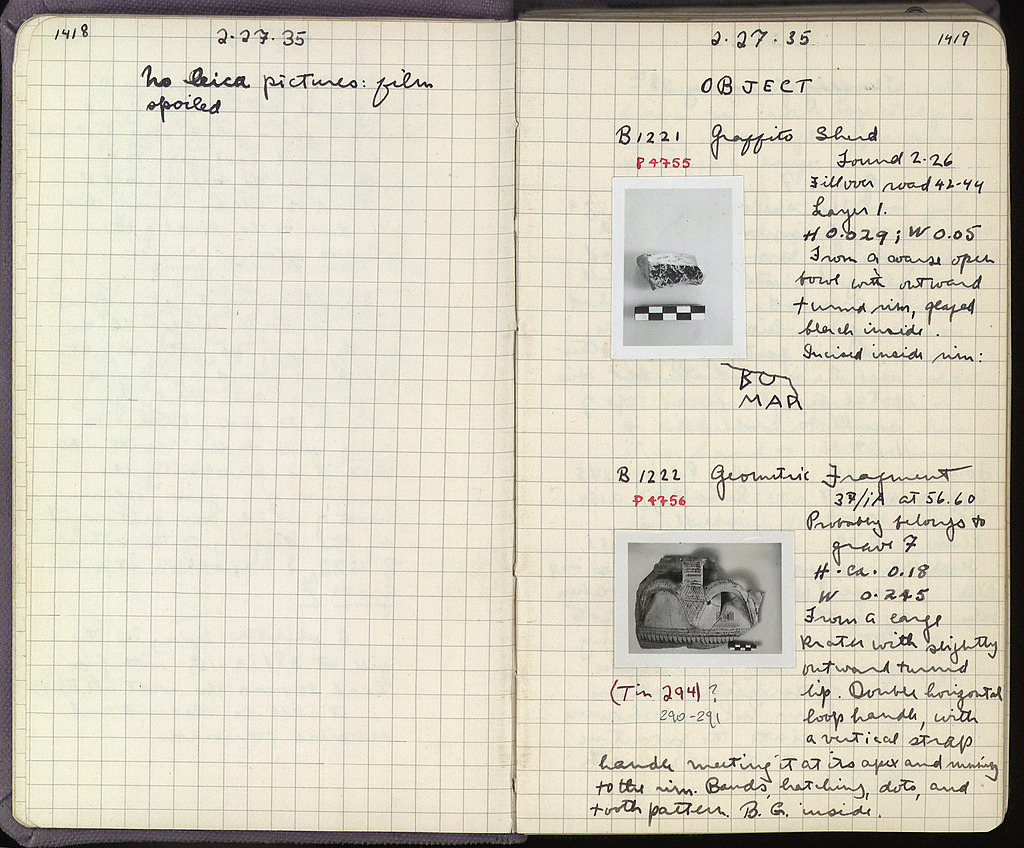 1418
2·27·35
No leica pictures: film
spoiled
2·27·35
1419
OBJECT
B 1221 Graffito Sherd
P 4755
Found 2·26
Fill over road 42-44
Layer 1.
H 0.029; W 0.05
From a coarse open
bowl with outward
turned rim, glazed
black inside.
Incised inside rim:
BO
MAR
B 1222 Geometric Fragment
P 4756
at 56.60
Probably belongs to
grave 7
H·ca· 0.18
W 0.245
From a large
krater with slightly
outward turned
lip. Double horizontal
loop handle, with
a vertical strap
handle meeting it at its apex and running
to the rim. Bands, hatching, dots, and
tooth pattern. B.G. inside.
(Tin 294)?
290-291